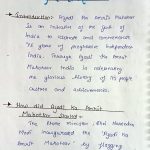 Introduction:- Azadi Ka Amrit Mahotsav
is an initiative of the Govt of
India to celebrate and commemorate
75 years of progressive independent
India. Through Azadi Ka Amrit
Mahotsav India is celebrating
the glorious history of its people
culture and achievements.
How did Azadi Ka Amrit
Mahotsav Started :-
The Prime Minister Shri Narendra
Modi inaugurated the "Azadi Ka
Amrit Mahotsav" by flagging